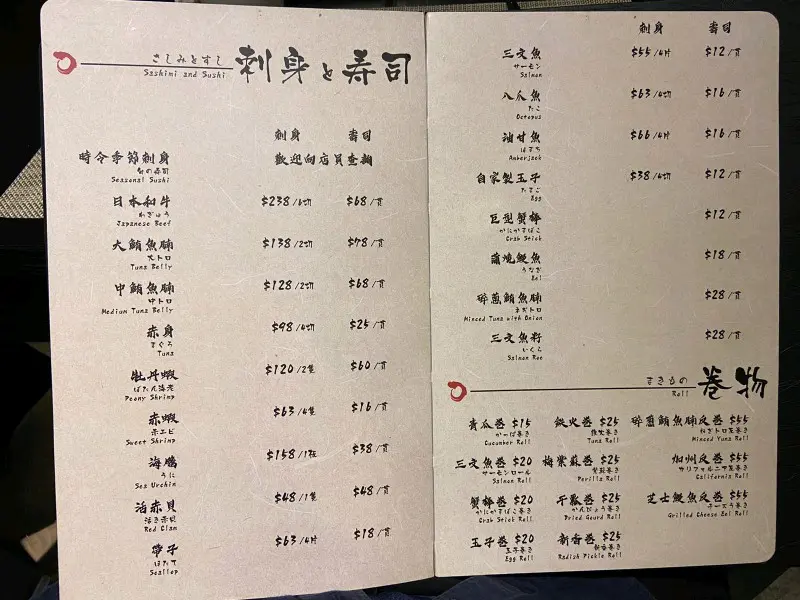 さしみとすし
Sashimi and Sushi
刺身と寿司
刺身 壽司
時令季節刺身 歡迎向店員查詢
旬の寿司
Seasonal Sushi
日本和牛 $238/6切 $68/貫
わぎゅう
Japanese Beef
大鮪魚腩 $138/2切 $78/貫
大トロ
Tuna Belly
中鮪魚腩 $128/2切 $68/貫
中トロ
Medium Tuna Belly
赤身 $98/4切 $25/貫
まぐろ
Tuna
牡丹蝦 $120/2隻 $60/貫
ぼたん海老
Peony Shrimp
赤蝦 $63/4隻 $16/貫
赤エビ
Sweet Shrimp
海膽 $158/1板 $38/貫
うに
Sea Urchin
活赤貝 $48/1隻 $48/貫
活き赤貝
Red Clam
帶子 $63/4片 $18/貫
ほたて
Scallop
刺身 壽司
三文魚 $55/4片 $12/貫
サーモン
Salmon
八爪魚 $63/4切 $16/貫
たこ
Octopus
油甘魚 $66/4片 $16/貫
はまち
Amberjack
自家製玉子 $38/4切 $12/貫
たまご
Egg
巨型蟹棒 $12/貫
かにかまぼこ
Crab Stick
蒲燒鰻魚 $18/貫
うなぎ
Eel
碎蔥鮪魚腩 $28/貫
ネギトロ
Minced Tuna with Onion
三文魚籽 $28/貫
いくら
Salmon Roe
まきもの
Roll
巻物
青瓜卷 $15 鉄火卷 $25 碎蔥鮪魚腩反卷 $55
かっぱ巻き 鉄火巻き ねぎトロ裏巻き
Cucumber Roll Tuna Roll Minced Tuna Roll
三文魚卷 $20 梅紫蘇卷 $25 加州反卷 $55
サーモンロール 紫蘇巻き カリフォルニア裏巻き
Salmon Roll Perilla Roll California Roll
蟹棒卷 $20 干瓢卷 $25 芝士鰻魚反卷 $55
かにかまぼこ巻き かんぴょう巻き チーズう巻き
Crab Stick Roll Dried Gourd Roll Grilled Cheese Eel Roll
玉子卷 $20 新香卷 $25
玉子巻き 新香巻き
Egg Roll Radish Pickle Roll